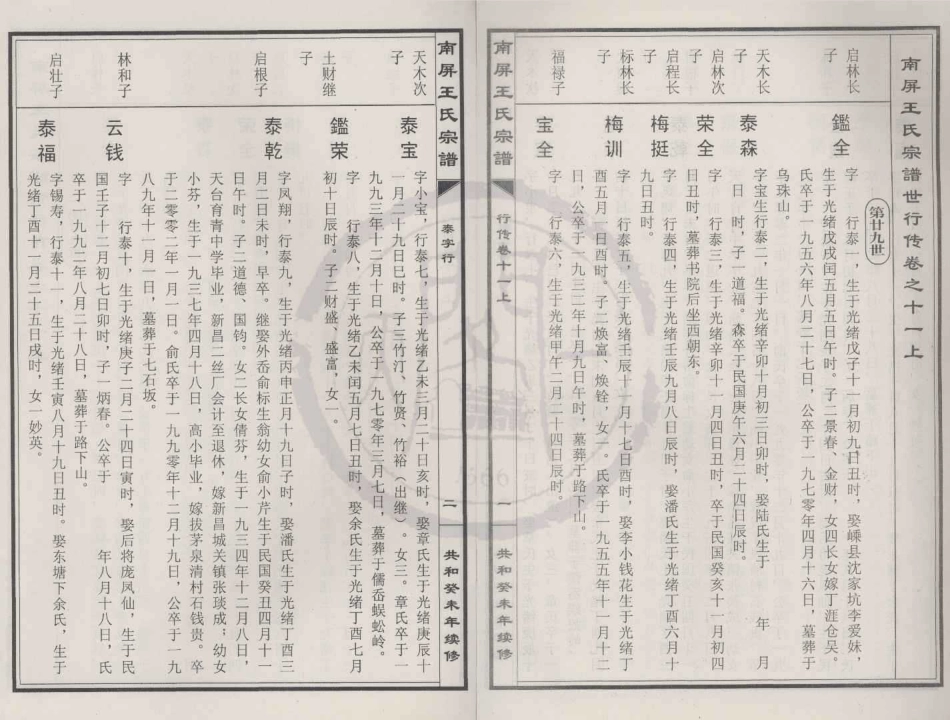 南屏王氏宗譜世行传卷之十一上
第廿九世
启林长
子
鑑全
字　行泰一，生于光绪戊子十一月初九日丑时，娶嵊县沈家坑李爱妹，
生于光绪戊戌闰五月五日午时。子二景春、金财，女四长女嫁丁涯仓吴。
氏卒于一九五六年八月二十七日，公卒于一九七零年四月十六日，墓葬于
乌珠山。
天木长
子
泰森
字宝生行泰二，生于光绪辛卯十月初三日卯时，娶陆氏生于　年　月
日　时，子一道福。森卒于民国庚午六月二十四日辰时。
启林次
子
荣全
字　行泰三，生于光绪辛卯十一月四日丑时，卒于民国癸亥十一月初四
日丑时，墓葬书院后坐西朝东。
启程长
子
梅挺
字　行泰四，生于光绪壬辰九月八日辰时，娶潘氏生于光绪丁酉六月十
九日丑时。
标林长
子
梅训
字　行泰五，生于光绪壬辰十一月十七日酉时，娶李小钱花生于光绪丁
酉五月一日酉时。子二焕富、焕铨，女一。氏卒于一九五五年十一月十二
日，公卒于一九三二年十月九日午时，墓葬于路下山。
福禄子
宝全
字　行泰六，生于光绪甲午二月二十四日辰时。
南屏王氏宗譜
行传卷十一上
一
共和癸未年续修
南屏王氏宗譜
泰字行
二
共和癸未年续修
天木次
子
泰宝
字小宝，行泰七，生于光绪乙未三月二十日亥时，娶章氏生于光绪庚辰十
一月二十九日巳时。子三竹汀、竹贤、竹裕（出继）。女三。章氏卒于一
九九三年十二月十日，公卒于一九七零年三月七日，墓葬于儒岙蜈蚣岭。
土财继
子
鑑荣
字　行泰八，生于光绪乙未闰五月七日丑时，娶余氏生于光绪丁酉七月
初十日辰时。子二财盛，盛富，女一。
启根子
泰乾
字凤翔，行泰九，生于光绪丙申正月十九日子时，娶潘氏生于光绪丁酉三
月二日未时，早卒。继娶外岙俞标生翁幼女俞小芹生于民国癸丑四月十一
日午时。子二道德、国钧。女二长女倩芬，生于一九三四年十二月八日，
天台育青中学毕业，新昌二丝厂会计至退休，嫁新昌城关镇张琰成；幼女
小芬，生于一九三七年四月十八日，高小毕业，嫁拔茅泉清村石钱贵。卒
于二零零二年一月一日。俞氏卒于一九九零年十二月十九日，公卒于一九
八九年十一月一日，墓葬于七石坂。
林和子
云钱
字　行泰十，生于光绪庚子二月二十四日寅时，娶后将庞凤仙，生于民
国壬子十二月初七日卯时，子一炳春。公卒于　年八月十八日，氏
卒于一九九二年八月二十八日，墓葬于路下山。
启壮子
泰福
字锡寿，行泰十一，生于光绪壬寅八月十九日丑时。娶东塘下余氏，生于
光绪丁酉十一月二十五日戌时，女一妙英。